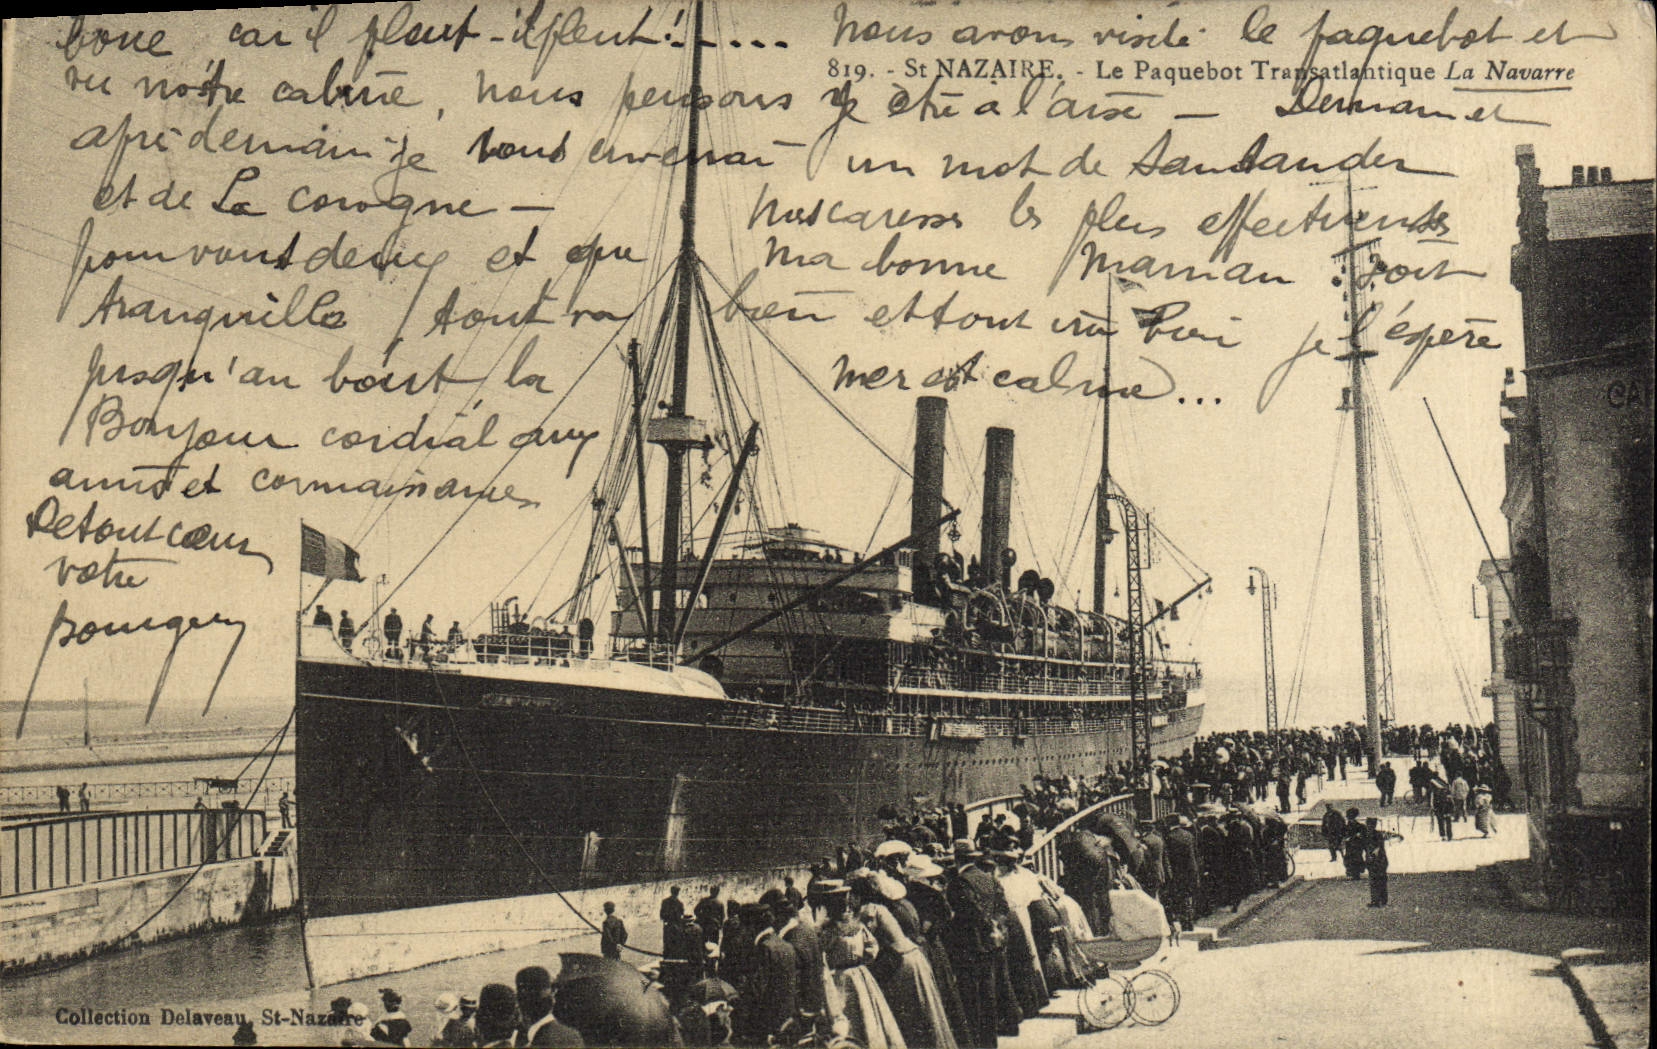 boue car il pleut - il pleut !.... Nous avons visité le paquebot et
819. - St NAZAIRE. - Le Paquebot Transatlantique La Navarre
vu nôtre cabine, nous pensons y être à l'aise — Demain et
après demain je vous enverrai un mot de Santander
et de La Corogne — Nos caresses les plus affectueuses
pour vous deux et que ma bonne Maman soit
tranquille, tout va bien et tout ira bien je l'espère
jusqu'au bout, la mer est calme...
Bonjour cordial aux
amis et connaissances
De tout cœur
votre
CA
Collection Delaveau, St-Nazaire